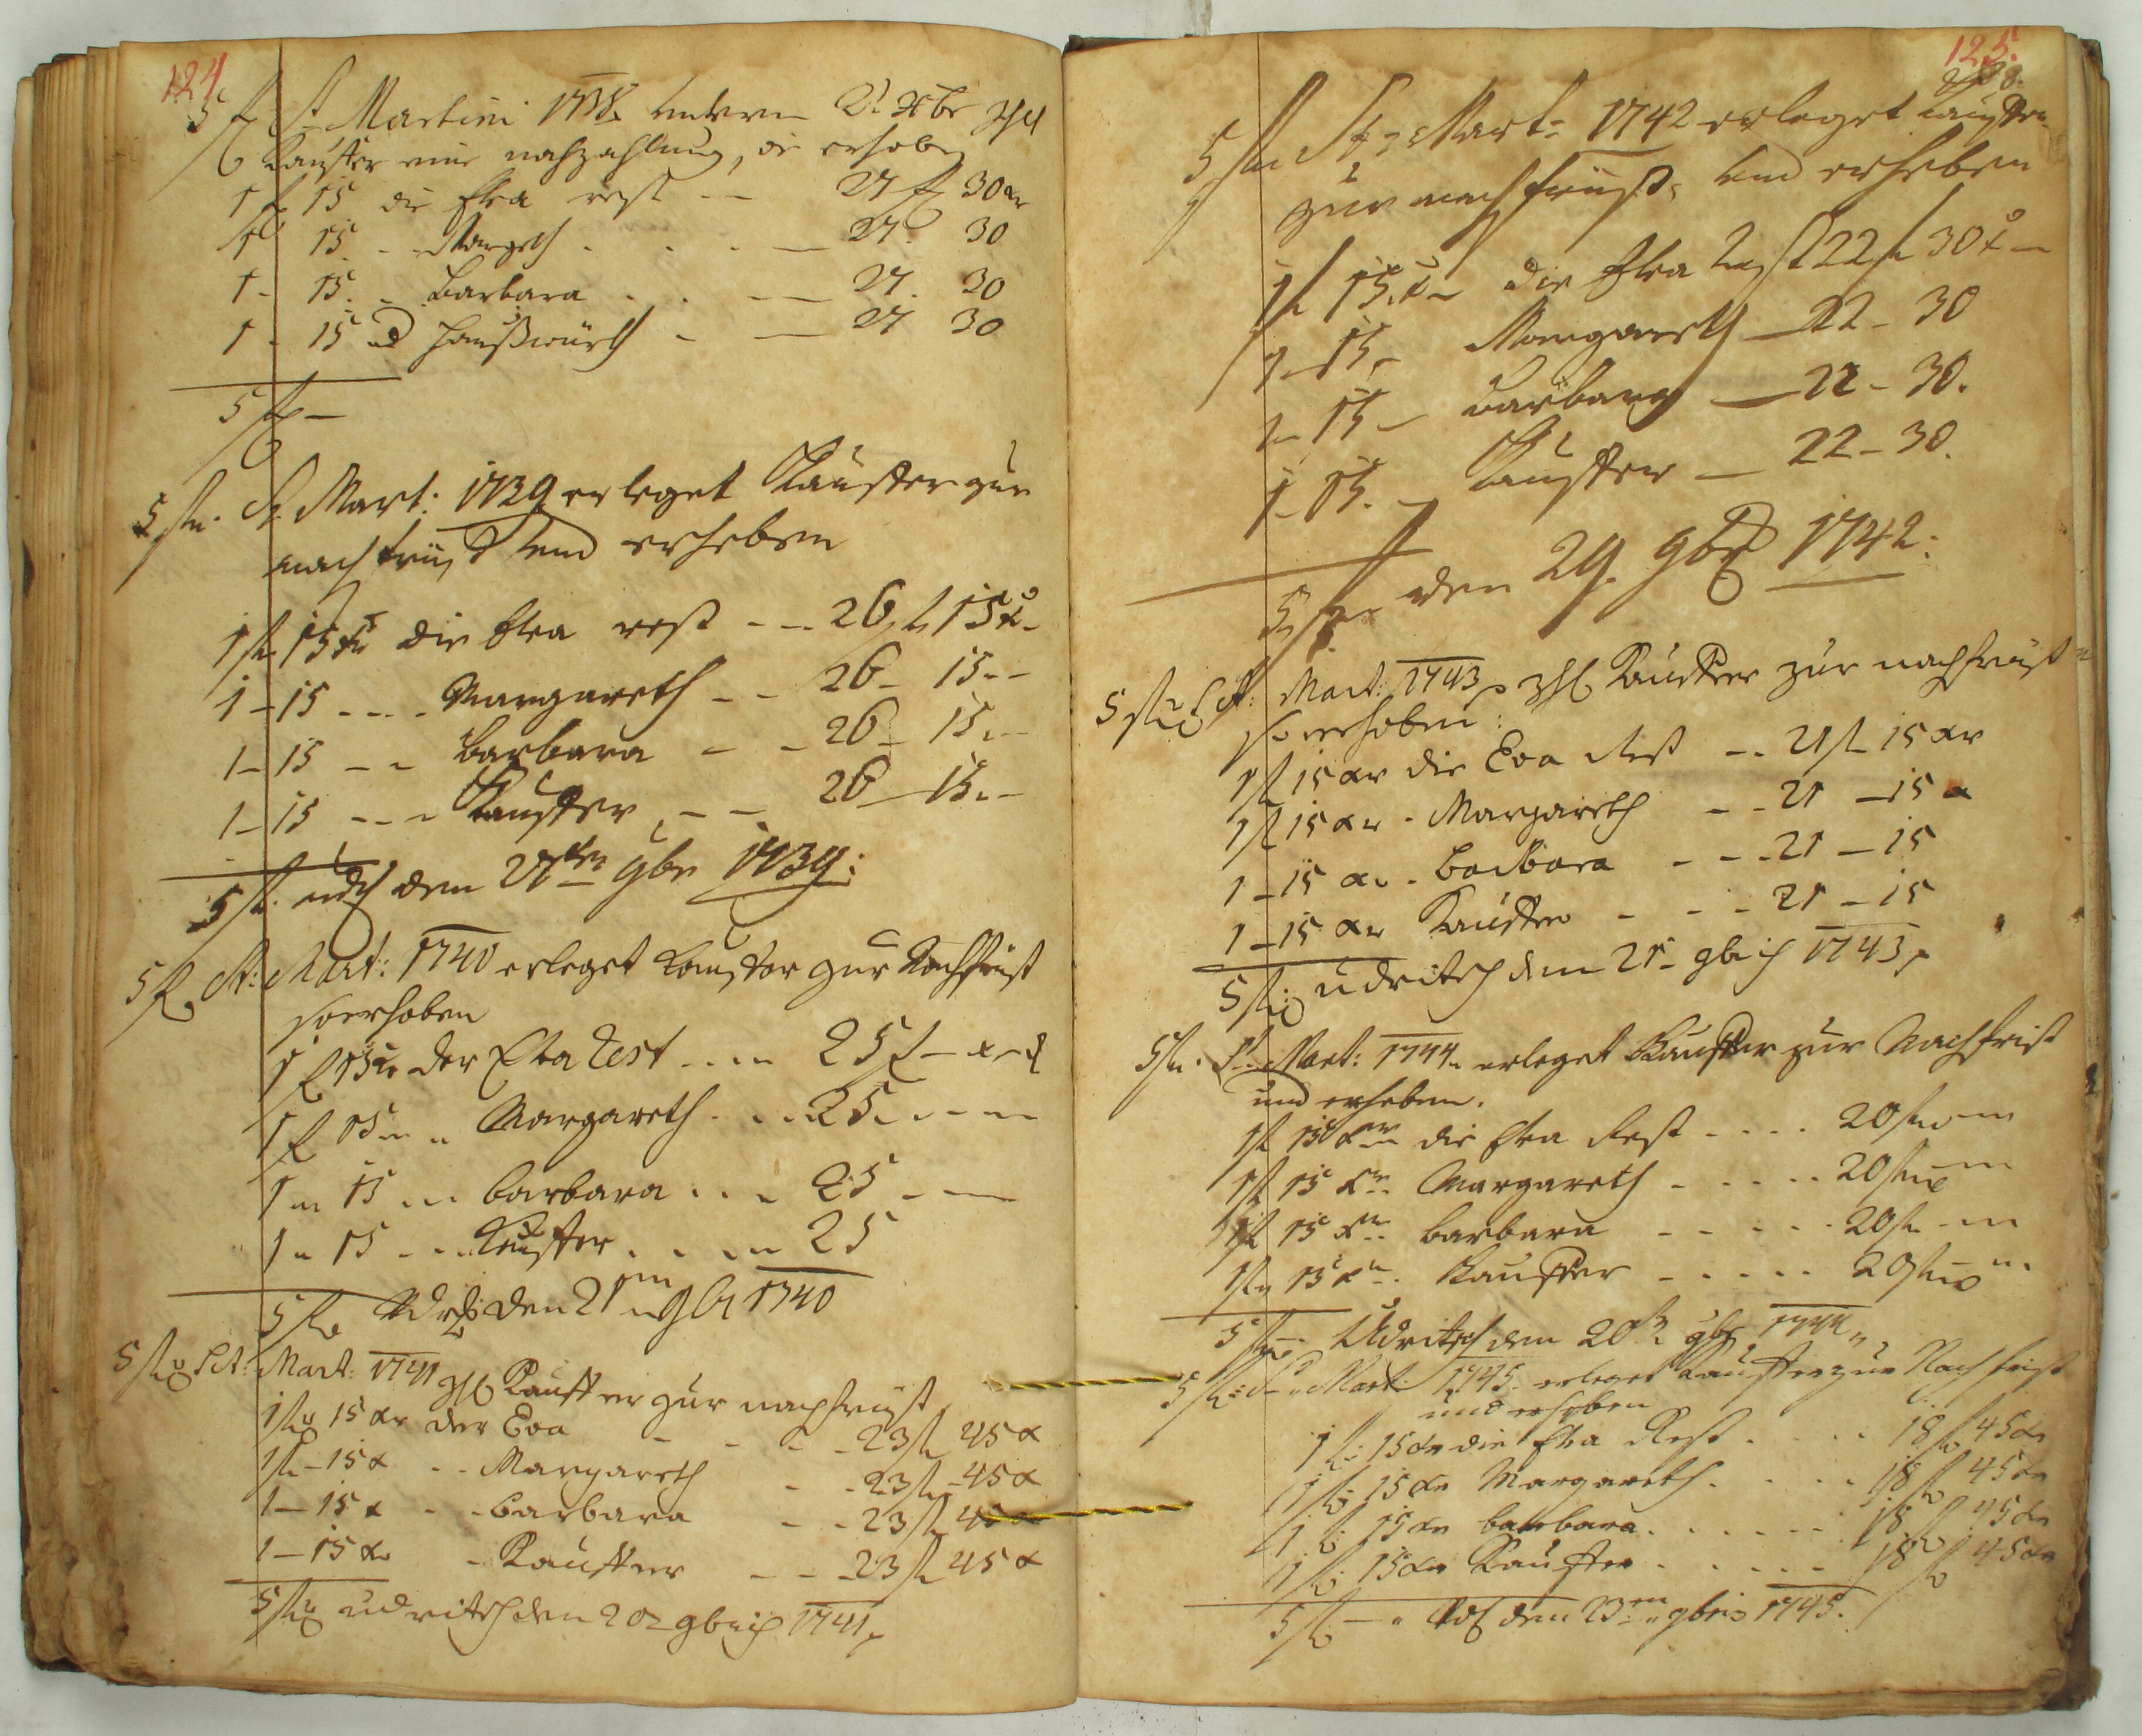 124
5 f St Martini 1738 untern 21 Xbr zhlt
Kauster eine nachzahlung, die erhoben
1 f 15 die Eva rest -- 27 f 30 xr
1 15 - Margeth . . . — 27. 30
1 - 15. - Barbara . . . — 27. 30
1 - 15 Haußwürth - — 27 30
5 f —
5 fl. St. Mart: 1739 erleget Kauster zur
nachfrist und erheben
1 fl 15 xr die Eva rest - - 26 fl 15 x -
1 - 15 - - - Margareth - - 26 - 15 - -
1 - 15 - - Barbara - - 26 - 15 - -
1 - 15 - - - Kauster - - 26 - 15 - -
5 fl. den 27ten 9br 1739:
5 f St: Mart: 1740 erleget Kauster zur Nachfrist
so erhoben
1 f 15 xr der Eva Rest . . . 25 f — x — d
1 f 15 - - Margareth . . . 25 - - - -
1 - 15 - - barbara . . . 25 - —
1 - 15 - - - Kauster . . . - 25
5 fl den 21ten 9br 1740
5 fl St: Mart: 1741 zhlt Kauster zur nachfrist
1 fl 15 xr der Eva - - - - 23 fl 45 x
1 fl - 15 x - - Margareth - - 23 fl - 45 x
1 — 15 x - - barbara - - 23 fl 45 x
1 — 15 xr - Kauster - - - 23 fl 45 x
5 fl udritsch den 20 - 9bris 1741.
125.
5 fl St: Mart: 1742 erleget Kauster
zur nachfrist, und erheben
1 fl 15 x - die Eva Rest 22 fl 30 x —
1 - 15 - Margareth — 22 - 30
1 - 15 - Barbara — 22 - 30.
1 - 15. - Kauster — 22 - 30.
5 fl den 29. 9br 1742:
5 fl St: Mart: 1743 zhlt Kauster zur nachfrist
so erhoben:
1 fl 15 xr die Eva Rest - - 21 fl 15 xr
1 fl 15 xr - Margareth - - 21 — 15 x
1 — 15 xr - Barbara - - - 21 — 15
1 — 15 xr Kauster - - - 21 — 15
5 fl udritsch den 21 - 9bris 1743.
5 fl. St: Mart: 1744 erleget Kauster zur Nachfrist
und erheben.
1 fl 15 xr die Eva Rest - . . . 20 fl — —
1 fl 15 xr Margareth - . . . . 20 fl — —
1 fl 15 xr barbara - - - - . 20 fl - —
1 fl 15 xr. Kauster - . - . . 20 fl —
5 fl — Udritsch den 20 9br 1744
5 fl: St: Mart: 1745 erleget Kauster zur Nachfrist
und erheben
1 fl: 15 xr die Eva Rest . . . . 18 fl 45 xr
1 fl: 15 xr Margareth. . . . . 18 fl 45 xr
1 fl: 15 xr barbara. . . . . . . 18 fl 45 xr
1 fl: 15 xr Kauster . . . . . . 18 fl 45 xr
5 fl — den 23ten 9bris 1745.